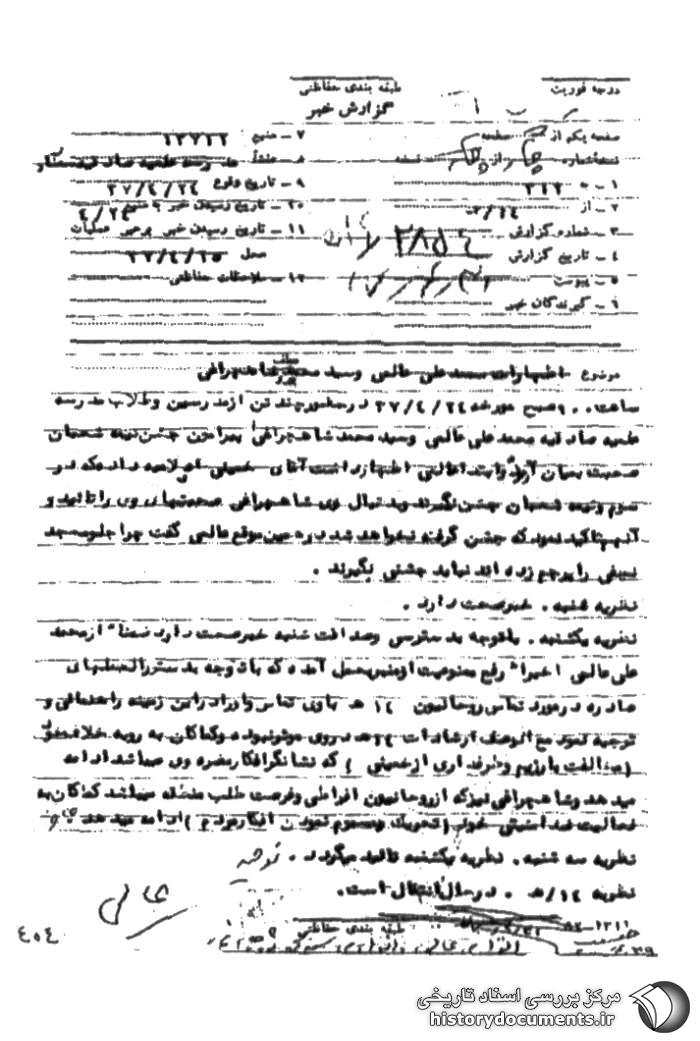 درجه فوریت
طبقه بندی حفاظتی
گزارش خبر
صفحه یکم از صفحه
نسخه شماره از نسخه
۱ - به ۳۱۲
۲ - از
۳ - شماره گزارش ۲۸۵۴
۴ - تاریخ گزارش
۵ - پیوست
۶ - گیرندگان خبر
۷ - منبع ۱۲۷۱۲
۸ - منشاء مدرسه علمیه صادقیه
۹ - تاریخ وقوع ۳۷/۴/۲۴
۱۰ - تاریخ رسیدن خبر به منبع ۴/۲۴
۱۱ - تاریخ رسیدن خبر برهبر عملیات
محل ۳۷/۴/۲۵
۱۲ - ملاحظات حفاظتی
موضوع - اظهارات محمدعلی عالمی و سید محمد شاهچراغی
ساعت ۹۰۰ صبح مورخه ۳۷/۴/۲۴ در حضور چند تن از مدرسین و طلاب مدرسه
علمیه صادقیه محمدعلی عالمی و سید محمد شاهچراغی پیرامون جشن نیمه شعبان
صحبت بمیان آمد ابتدا عالمی اظهار داشت آقای خمینی اعلامیه داده که در
سوم و نیمه شعبان جشن نگیرند و بدنبال وی شاهچراغی صحبتهای وی را تائید و
تاکید نمود که جشن گرفته نخواهد شد در همین موقع عالمی گفت چرا جلو مسجد
را پرچم زده اند نباید جشنی بگیرند .
نظریه شنبه . خبر صحت دارد .
نظریه یکشنبه . با توجه به دسترسی و صداقت شنبه خبر صحت دارد ضمنا" از محمد
علی عالمی اخیرا" رفع ممنوعیت از منبر بعمل آمده که با توجه به دستورالعملهای
صادره در مورد تماس روحانیون ۱۴ ه با وی تماس و او را در این زمینه راهنمائی و
توجیه نمود مع الوصف ارشادات ۱۴ ه در وی موثر نبوده و کماکان به رویه خلاف خود
(مخالفت با رژیم و طرفداری از خمینی ) که نشانگر افکار مضره وی میباشد ادامه
میدهد و شاهچراغی نیز که از روحانیون افراطی و فرصت طلب منطقه میباشد کماکان به
فعالیت ضد امنیتی خود (تحریک و مسموم نمودن افکار مردم ) ادامه میدهد
نظریه سه شنبه . نظریه یکشنبه تائید میگردد .
نظریه ۱۴/ه . در حال انتقال است.
عالمی
۴۵۴
طبقه بندی حفاظتی
مرکز بررسی اسناد تاریخی
historydocuments.ir